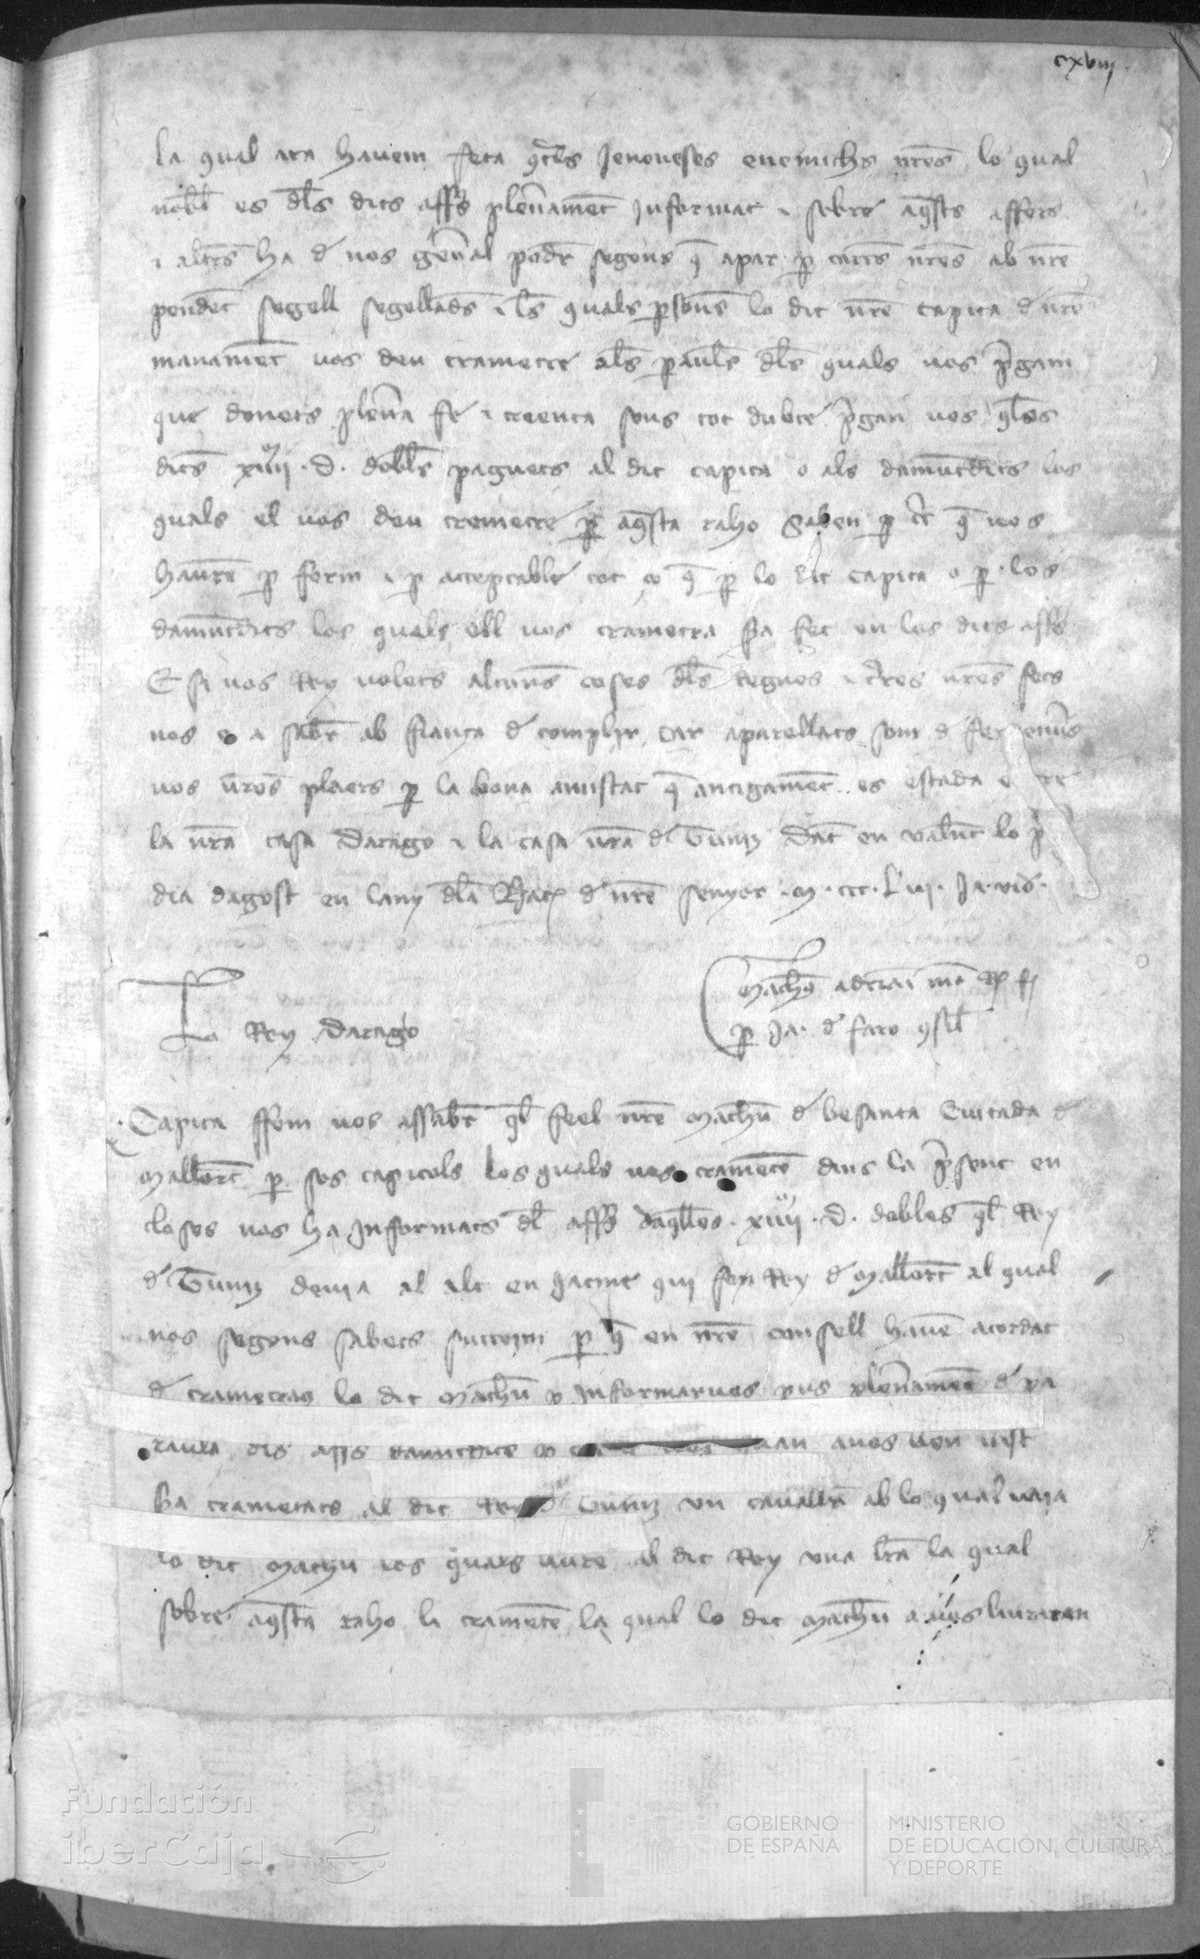 cxviij
la qual ara havem feta cōtrals Jenoveses enemichs nr̄es lo qual
nobl̄ es dl̄s dits affr̄s plenamēt informat i sobre aq̄sts affers
i altr̄s ha d̄ nos gēnal poder segons q̄ apar p̄ cartes nr̄es ab nr̄e
pendēt segell segellades i l̄s quals p̄sones lo dit nr̄e capita d̄ nr̄e
manamēt vos deu trametre als paraul̄s dl̄s quals vos p̄gam
que donets plēna fe i creença sens tot dubte p̄gan vos q̄ les
dits xiiij · D · dobl̄s paguets al dit capita o als damūtdits los
quals el vos deu tremetre p̄ aq̄sta raho Saben p̄ c̄t q̄ nos
haurē p̄ ferm i p̄ acceptable tot ço q̄ p̄ lo dit capita o p̄ los
damūtdits los quals ell vos trametra sia fet en los dits affr̄s
E si vos Rey volets alcunes coses dl̄s regnes i t̄res nr̄es fets
nos o a saber ab fiança d̄ complir car aparellats som d̄ fer
vos vr̄es plaers p̄ la bona amistat q̄ antigamēt es estada
la nr̄a casa Darago i la casa vr̄a d̄ Tuniz Dat̄ en Valēnc lo p̄
dia dagost en lany dl̄a Nat̄ d̄ nr̄e senyor · M · ccc · L vij · Ja · vid̄ ·
Lo Rey Darago
Math̄s adriāi mā R̄ f̄
p̄ Ja · d̄ faro
Capita ffem vos assabēr q̄l feel nr̄e Mach̄u d̄ besanta Ciutada d̄
Mallorc̄ p̄ ses capitols los quals vos trametē dins la p̄sent en
closes nos ha informats dl̄ affr̄s daq̄lles · xiiij · D · dobles q̄l Rey
d̄ Tuniz devia al alt en Jacme qui fon Rey d̄ Mallorc̄ al qual
nos segons sabets succeim p̄ q̄ en nr̄e consell havē acordat
d̄ trametraus lo dit Mach̄u p̄ informarvos pus plēnamēt d̄ pa
raula dls affrs damūtdits
sia trametats al dit Rey d̄ Tuniz un cavallr̄ ab lo qual vaja
lo dit Machu los quals liure al dit Rey una lr̄a la qual
sobre aq̄sta raho li trametē la qual lo dit Mach̄u a vos liurara en
Fundación
iberCaja
GOBIERNO
DE ESPAÑA
MINISTERIO
DE EDUCACIÓN, CULTURA
Y DEPORTE